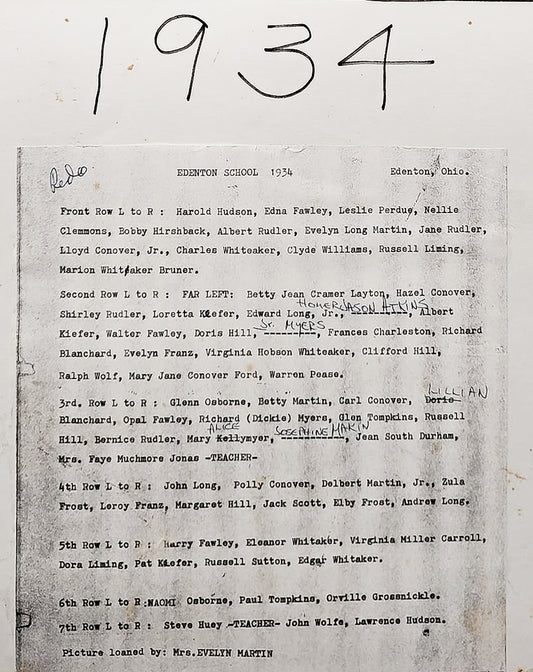 1934
Redo
EDENTON SCHOOL 1934 Edenton, Ohio.
Front Row L to R : Harold Hudson, Edna Fawley, Leslie Perdue, Nellie
Clemmons, Bobby Hirshback, Albert Rudler, Evelyn Long Martin, Jane Rudler,
Lloyd Conover, Jr., Charles Whiteaker, Clyde Williams, Russell Liming,
Marion Whiteaker Bruner.
Second Row L to R : FAR LEFT: Betty Jean Cramer Layton, Hazel Conover,
HOMER JASON ATKINS
Shirley Rudler, Loretta Kiefer, Edward Long, Jr., ---------- Albert
Jr. MYERS
Kiefer, Walter Fawley, Doris Hill, ---------, Frances Charleston, Richard
Blanchard, Evelyn Franz, Virginia Hobson Whiteaker, Clifford Hill,
Ralph Wolf, Mary Jane Conover Ford, Warren Pease.
LILLIAN
3rd. Row L to R : Glenn Osborne, Betty Martin, Carl Conover, Doris
Blanchard, Opal Fawley, Richard (Dickie) Myers, Glen Tompkins, Russell
ALICE JOSEPHINE MAKIN
Hill, Bernice Rudler, Mary Kellymyer, -----------, Jean South Durham,
Mrs. Faye Muchmore Jonas -TEACHER-
4th Row L to R : John Long, Polly Conover, Delbert Martin, Jr., Zula
Frost, Leroy Franz, Margaret Hill, Jack Scott, Elby Frost, Andrew Long.
5th Row L to R : Harry Fawley, Eleanor Whitaker, Virginia Miller Carroll,
Dora Liming, Pat Kiefer, Russell Sutton, Edgar Whitaker.
6th Row L to R :NAOMI Osborne, Paul Tompkins, Orville Grossnickle.
7th Row L to R : Steve Huey -TEACHER- John Wolfe, Lawrence Hudson.
Picture loaned by: Mrs.EVELYN MARTIN